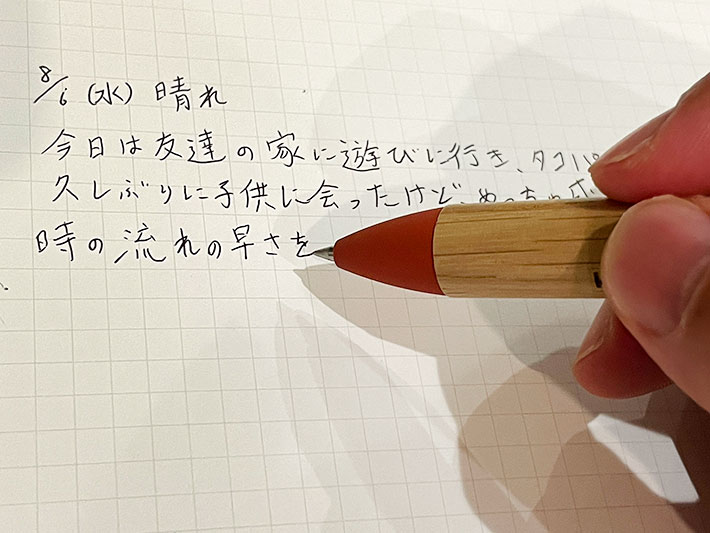 8/6 (水) 晴れ
今日は友達の家に遊びに行き、タコパ
久しぶりに子供に会ったけど、めっちゃ
時の流れの早さを